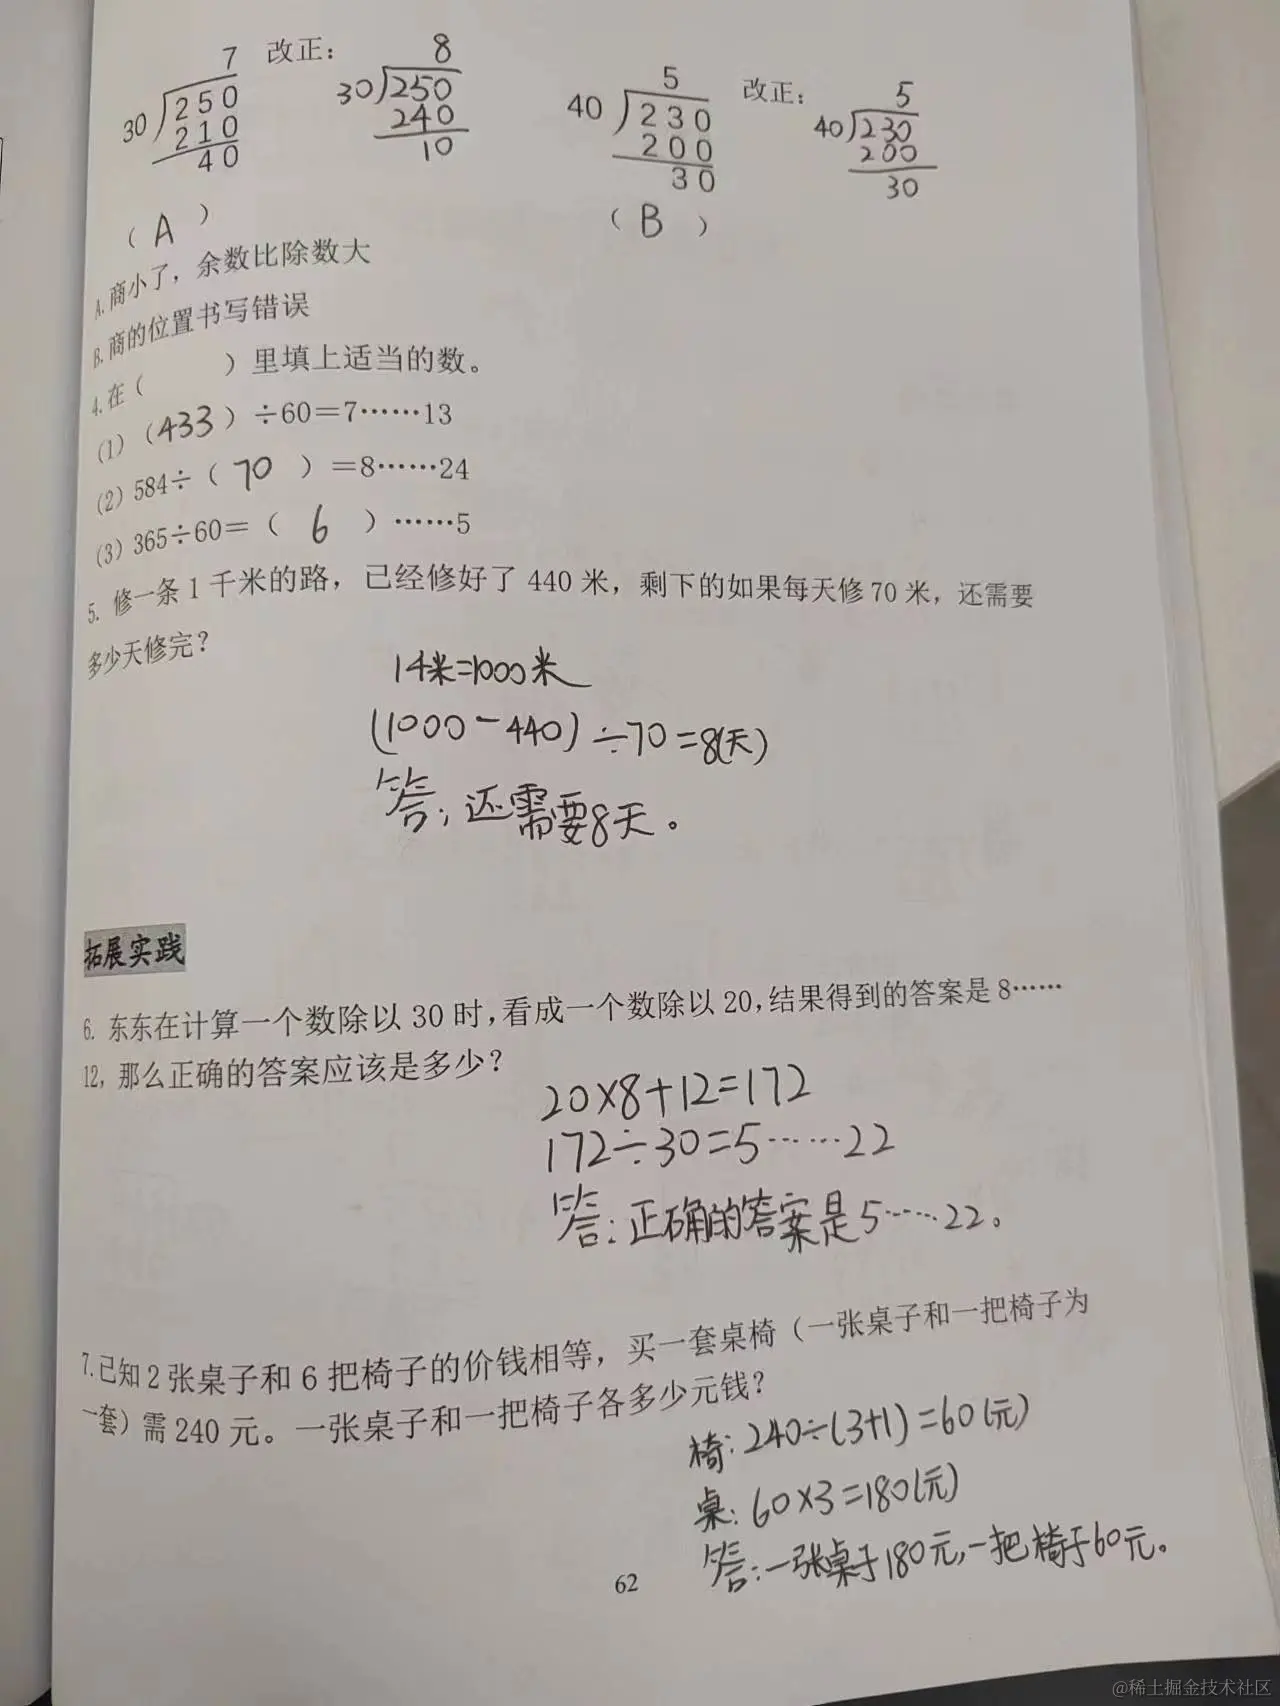 7 改正: 8 5 改正: 5
30 250 30 250 40 230 40 230
210 240 200 200
40 10 30 30
( A ) ( B )
A.商小了,余数比除数大
B.商的位置书写错误
4.在( )里填上适当的数。
(1)(433)÷60=7……13
(2)584÷(70)=8……24
(3)365÷60=(6)……5
5. 修一条1千米的路,已经修好了440米,剩下的如果每天修70米,还需要
多少天修完?
1千米=1000米
(1000-440)÷70=8(天)
答:还需要8天。
拓展实践
6. 东东在计算一个数除以30时,看成一个数除以20,结果得到的答案是8……
12,那么正确的答案应该是多少?
20×8+12=172
172÷30=5……22
答:正确的答案是5……22。
7.已知2张桌子和6把椅子的价钱相等,买一套桌椅(一张桌子和一把椅子为
一套)需240元。一张桌子和一把椅子各多少元钱?
椅:240÷(3+1)=60(元)
桌:60×3=180(元)
答:一张桌子180元,一把椅子60元。
62
@稀土掘金技术社区